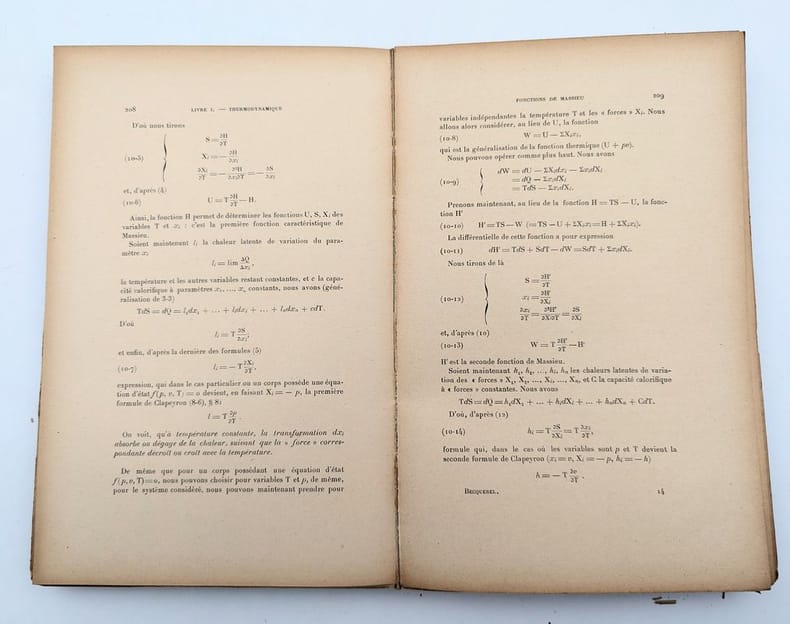 208 LIVRE I. — THERMODYNAMIQUE
D'où nous tirons
S = ∂H/∂T
(10-5) Xᵢ = − ∂H/∂xᵢ
∂Xᵢ/∂T = − ∂²H/∂xᵢ∂T = − ∂S/∂xᵢ
et, d'après (4)
(10-6) U = T ∂H/∂T − H.
Ainsi, la fonction H permet de déterminer les fonctions U, S, Xᵢ des
variables T et xᵢ : c'est la première fonction caractéristique de
Massieu.
Soient maintenant lᵢ la chaleur latente de variation du para-
mètre xᵢ
lᵢ = lim ΔQ/Δxᵢ,
la température et les autres variables restant constantes, et c la capa-
cité calorifique à paramètres xᵢ, ..., xₙ constants, nous avons (géné-
ralisation de 3-3)
TdS = dQ = l₁dx₁ + ... + lᵢdxᵢ + ... + lₙdxₙ + cdT.
D'où
lᵢ = T ∂S/∂xᵢ;
et enfin, d'après la dernière des formules (5)
(10-7) lᵢ = − T ∂Xᵢ/∂T,
expression, qui dans le cas particulier où un corps possède une équa-
tion d'état f(p, v, T) = o devient, en faisant Xᵢ = — p, la première
formule de Clapeyron (8-6), § 8 :
l = T ∂p/∂T.
On voit, qu'à température constante, la transformation dxᵢ
absorbe ou dégage de la chaleur, suivant que la « force » corres-
pondante décroît ou croît avec la température.
De même que pour un corps possédant une équation d'état
f(p, v, T) = o, nous pouvions choisir pour variables T et p, de même,
pour le système considéré, nous pouvons maintenant prendre pour
FONCTIONS DE MASSIEU 209
variables indépendantes la température T et les « forces » Xᵢ. Nous
allons alors considérer, au lieu de U, la fonction
(10-8) W = U − ΣXᵢxᵢ,
qui est la généralisation de la fonction thermique (U + pv).
Nous pouvons opérer comme plus haut. Nous avons
dW = dU − ΣXᵢdxᵢ − ΣxᵢdXᵢ
(10-9) = dQ − ΣxᵢdXᵢ
= TdS − ΣxᵢdXᵢ.
Prenons maintenant, au lieu de la fonction H = TS — U, la fonc-
tion H'
(10-10) H' = TS − W (= TS − U + ΣXᵢxᵢ = H + ΣXᵢxᵢ).
La différentielle de cette fonction a pour expression
(10-11) dH' = TdS + SdT − dW = SdT + ΣxᵢdXᵢ.
Nous tirons de là
S = ∂H'/∂T
(10-12) xᵢ = ∂H'/∂Xᵢ
∂xᵢ/∂T = ∂²H'/∂Xᵢ∂T = ∂S/∂Xᵢ
et, d'après (10)
(10-13) W = T ∂H'/∂T − H'
H' est la seconde fonction de Massieu.
Soient maintenant h₁, h₂, ..., hᵢ, hₙ les chaleurs latentes de varia-
tion des « forces » X₁, X₂, ..., Xᵢ, ..., Xₙ, et C la capacité calorifique
à « forces » constantes. Nous avons
TdS = dQ = h₁dX₁ + ... + hᵢdXᵢ + ... + hₙdXₙ + CdT.
D'où, d'après (12)
(10-14) hᵢ = T ∂S/∂Xᵢ = T ∂xᵢ/∂T,
formule qui, dans le cas où les variables sont p et T devient la
seconde formule de Clapeyron (xᵢ = v, Xᵢ = — p, hᵢ = — h)
h = − T ∂v/∂T.
BECQUEREL. 14